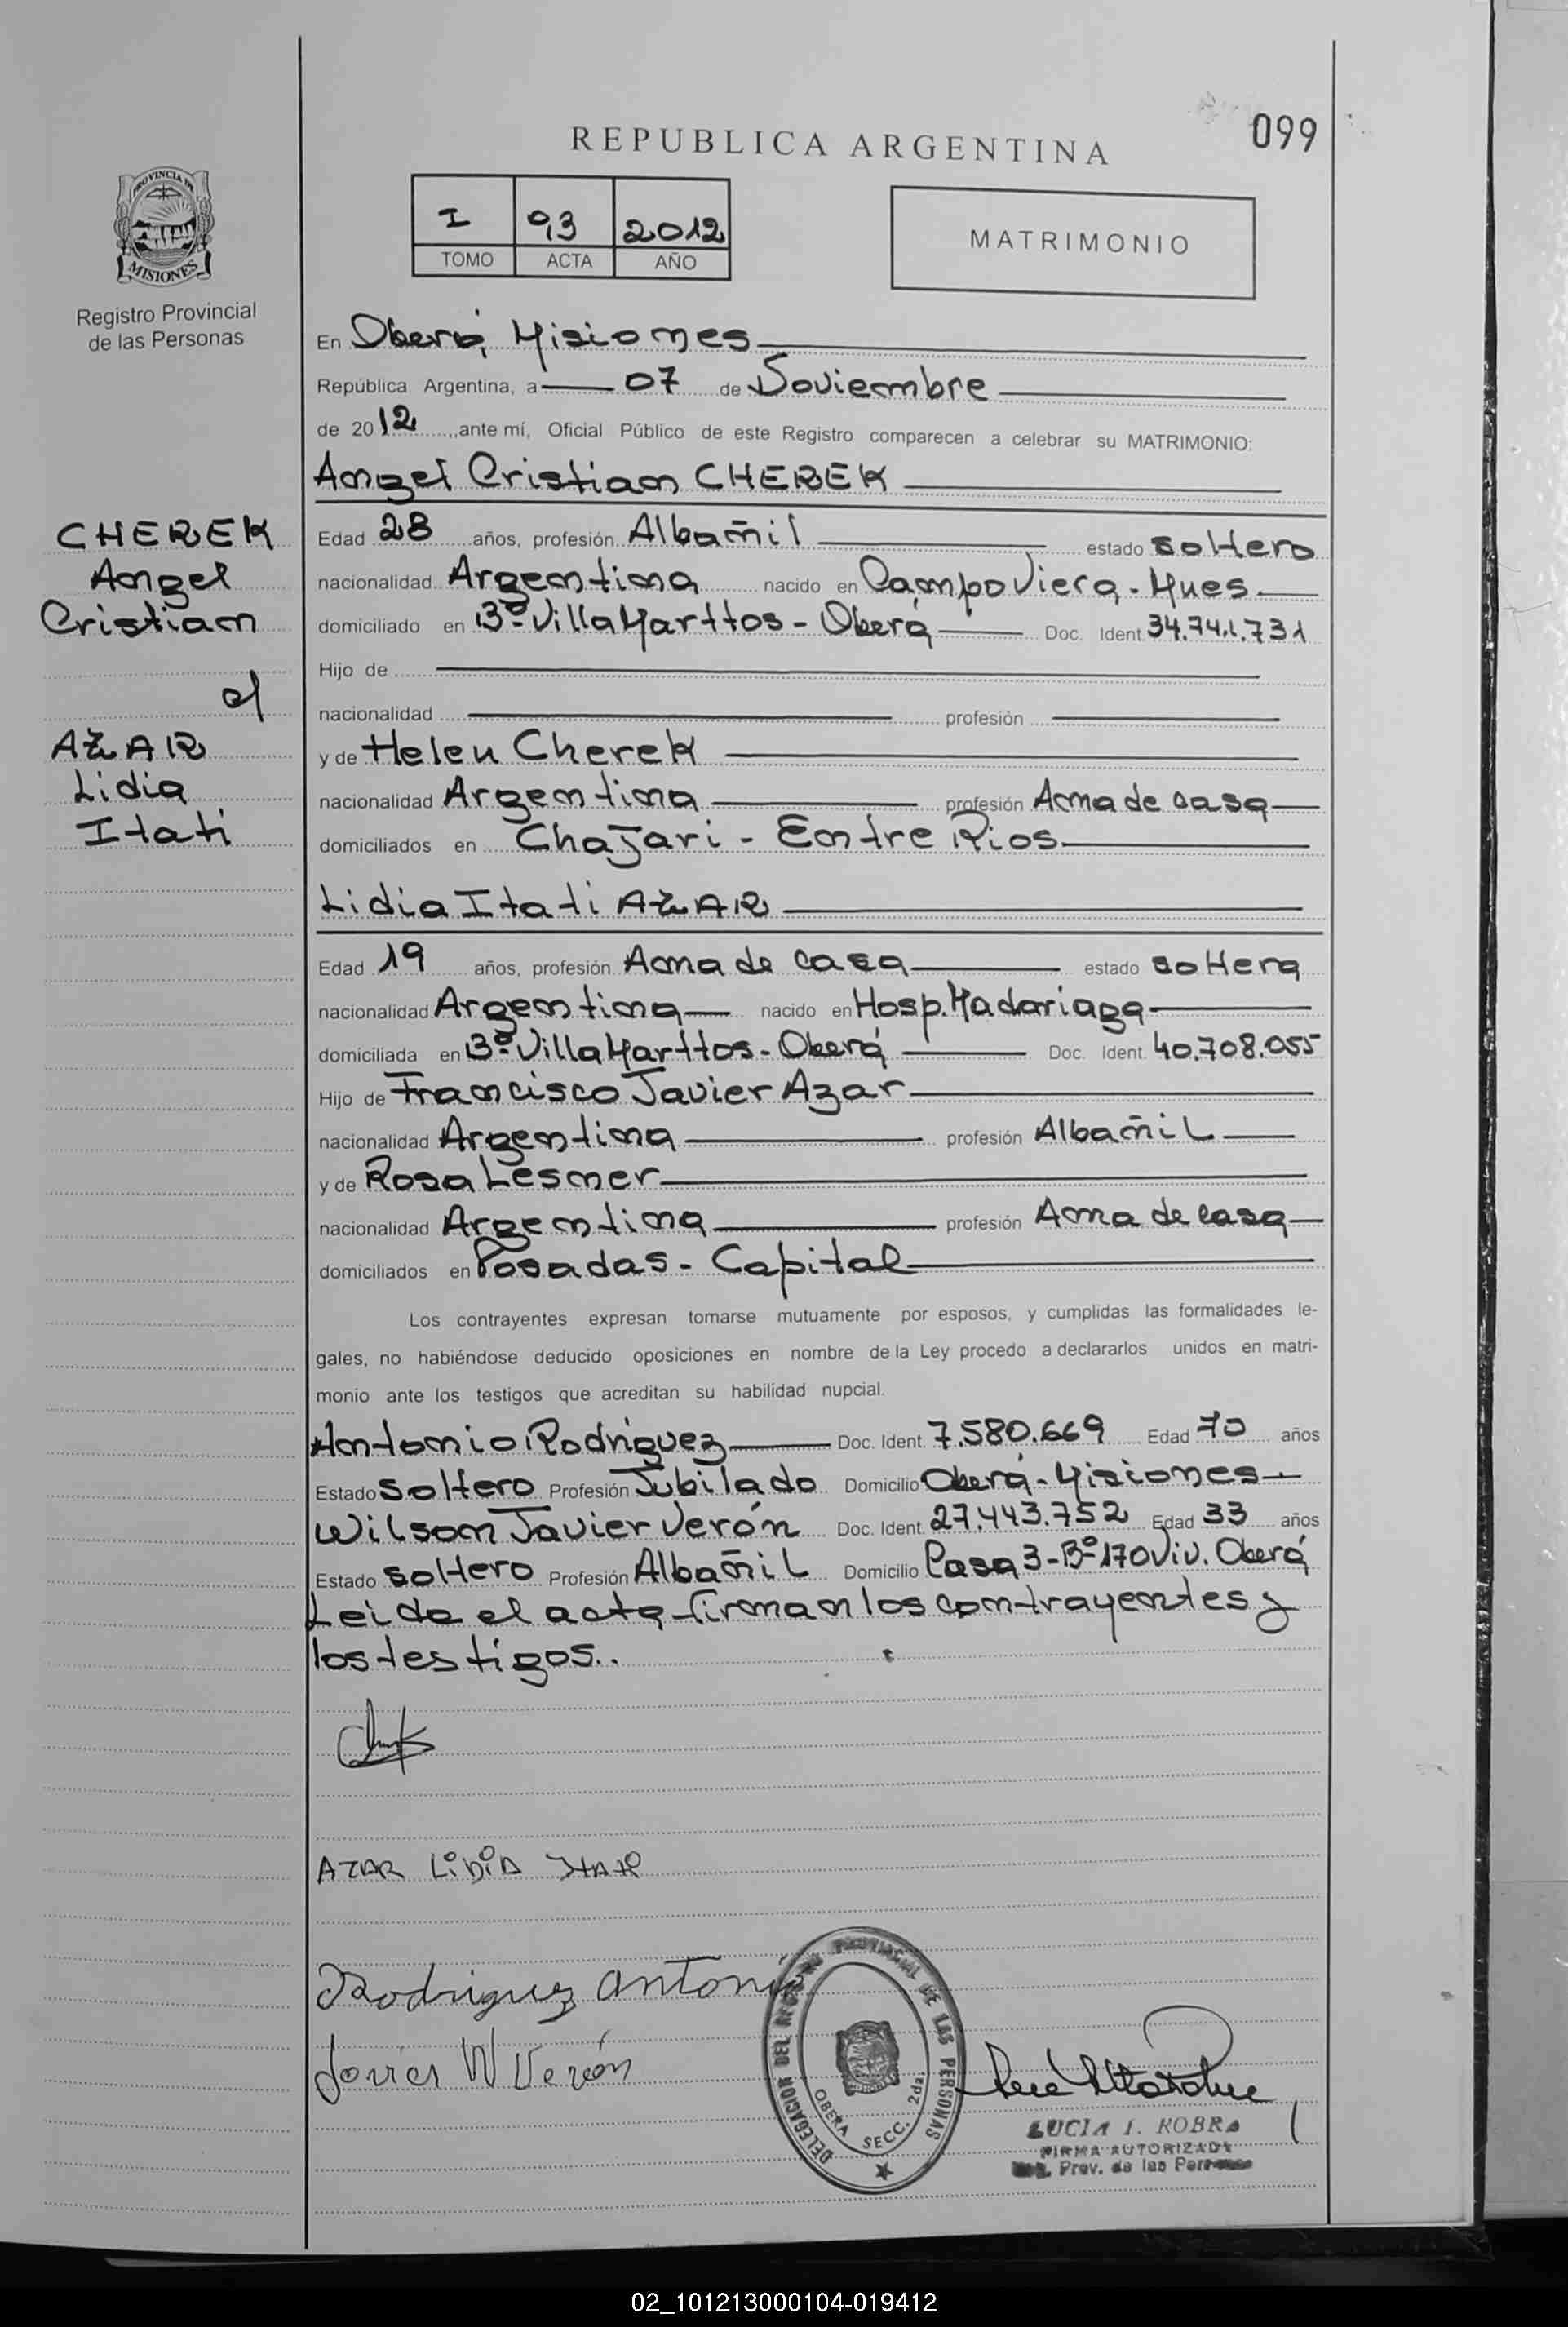 099
REPUBLICA ARGENTINA
PROVINCIA DE
MISIONES
Registro Provincial
de las Personas
I 93 2012
TOMO ACTA AÑO
MATRIMONIO
En Oberá, Misiones
República Argentina, a 07 de Noviembre
de 2012, ante mí, Oficial Público de este Registro comparecen a celebrar su MATRIMONIO:
Angel Cristian CHEREK
CHEREK
Angel
Cristian
c/
AZAR
Lidia
Itatí
Edad 28 años, profesión Albañil estado soltero
nacionalidad Argentina nacido en Campo Viera - Mnes.
domiciliado en Bº Villa Marttos - Oberá Doc. Ident. 34.741.731
Hijo de
nacionalidad profesión
y de Helen Cherek
nacionalidad Argentina profesión Ama de casa
domiciliados en Chajari - Entre Rios
Lidia Itati AZAR
Edad 19 años, profesión Ama de casa estado soltera
nacionalidad Argentina nacido en Hosp. Madariaga
domiciliada en Bº Villa Marttos - Oberá Doc. Ident. 40.708.055
Hijo de Francisco Javier Azar
nacionalidad Argentina profesión Albañil
y de Rosa Lesmer
nacionalidad Argentina profesión Ama de casa
domiciliados en Posadas - Capital
Los contrayentes expresan tomarse mutuamente por esposos, y cumplidas las formalidades le-
gales, no habiéndose deducido oposiciones en nombre de la Ley procedo a declararlos unidos en matri-
monio ante los testigos que acreditan su habilidad nupcial.
Antonio Rodríguez Doc. Ident. 7.580.669 Edad 70 años
Estado soltero Profesión Jubilado Domicilio Oberá - Misiones
Wilson Javier Verón Doc. Ident. 27.443.752 Edad 33 años
Estado soltero Profesión Albañil Domicilio Casa 3 - Bº 170 Viv. Oberá
Leida el acta firman los contrayentes y
los testigos..
AZAR LIDIA ITATI
Rodriguez Antonio
Javier W Verón
DELEGACION DEL REGISTRO PROVINCIAL DE LAS PERSONAS
OBERA SECC. 2da.
LUCIA I. ROBRA
FIRMA AUTORIZADA
Prov. de las Personas
02_101213000104-019412